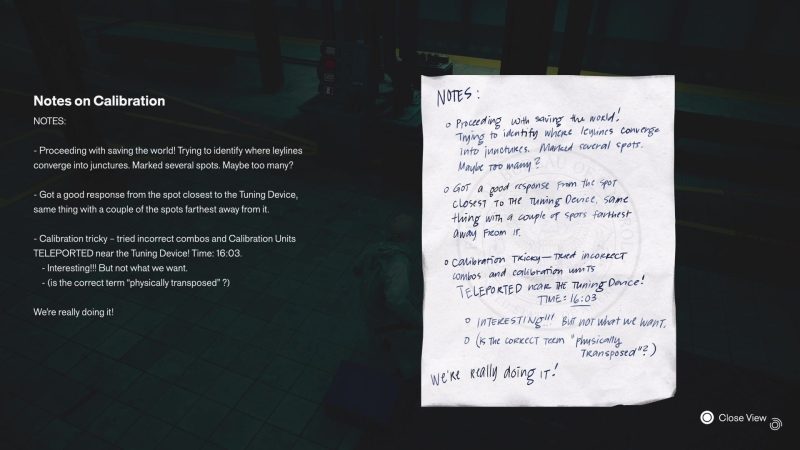 Notes on Calibration
NOTES:
- Proceeding with saving the world! Trying to identify where leylines
converge into junctures. Marked several spots. Maybe too many?
- Got a good response from the spot closest to the Tuning Device,
same thing with a couple of the spots farthest away from it.
- Calibration tricky – tried incorrect combos and Calibration Units
TELEPORTED near the Tuning Device! Time: 16:03.
- Interesting!!! But not what we want.
- (is the correct term "physically transposed" ?)
We're really doing it!
NOTES:
Proceeding with saving the world!
Trying to identify where leylines converge
into junctures. Marked several spots.
Maybe too many?
Got a good response from the spot
closest to the Tuning Device, same
thing with a couple of spots farthest
away from it.
Calibration tricky— tried incorrect
combos and calibration units
TELEPORTED near the Tuning Device!
TIME: 16:03
INTERESTING!!! But not what we want.
(Is the correct term "physically
transposed"?)
We're really doing it!
Close View